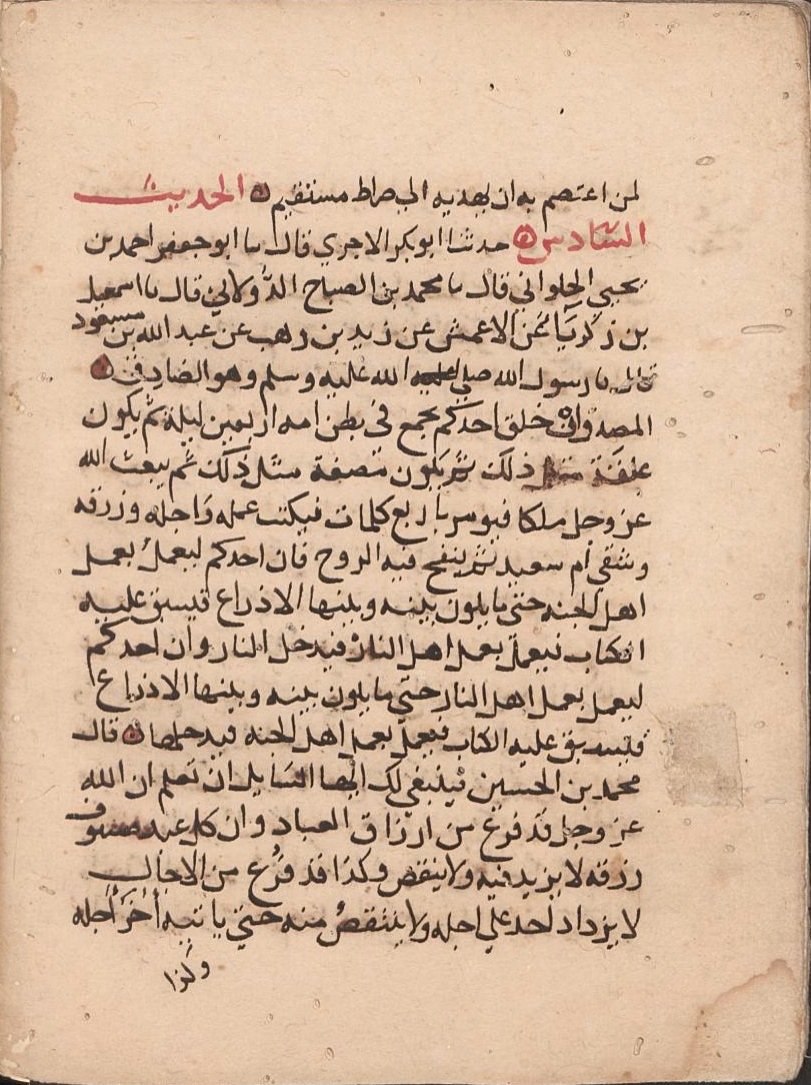 لمن اعتصم به ان يهديه الى صراط مستقيم ه الحديث
السادس ه حدثنا ابو بكر الاجري قال نا ابو جعفر احمد بن
يحيى الحلواني قال نا محمد بن الصباح الدولابي قال نا اسمعيل
بن زكريا عن الاعمش عن زيد بن وهب عن عبد الله بن مسعود
قال نا رسول الله صلى الله عليه وسلم وهو الصادق ه
المصدوق ان خلق احدكم يجمع في بطن امه اربعين ليلة ثم يكون
علقة مثل ذلك ثم يكون مضغة مثل ذلك ثم يبعث الله
عز وجل ملكا فيومر باربع كلمات فيكتب عمله واجله ورزقه
وشقي أم سعيد ثم ينفخ فيه الروح فان احدكم ليعمل بعمل
اهل الجنه حتى ما يكون بينه وبينها الا ذراع فيسبق عليه
الكتاب فيعمل بعمل اهل النار فيدخل النار وان احدكم
ليعمل بعمل اهل النار حتى ما يكون بينه وبينها الا ذراع
فيسبق عليه الكتاب فيعمل بعمل اهل الجنه فيدخلها ه قال
محمد بن الحسين فينبغي لك ايها السايل ان تعلم ان الله
عز وجل قد فرغ من ارزاق العباد وان كل عبد مستوف
رزقه لا يزيد فيه ولا ينقص وكذا قد فرغ من الاجال
لا يزداد احد علي اجله ولا ينتقص منه حتى ياتيه أخر أجله
وكذا